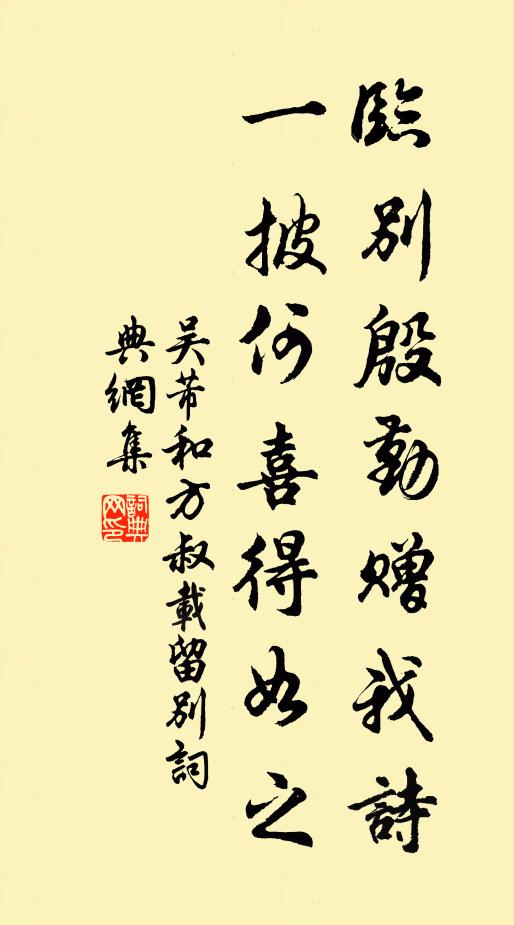 臨別殷勤贈我詩
一披何喜得如之
吴芾和方叔載留別詞
典網集
詞典
网印